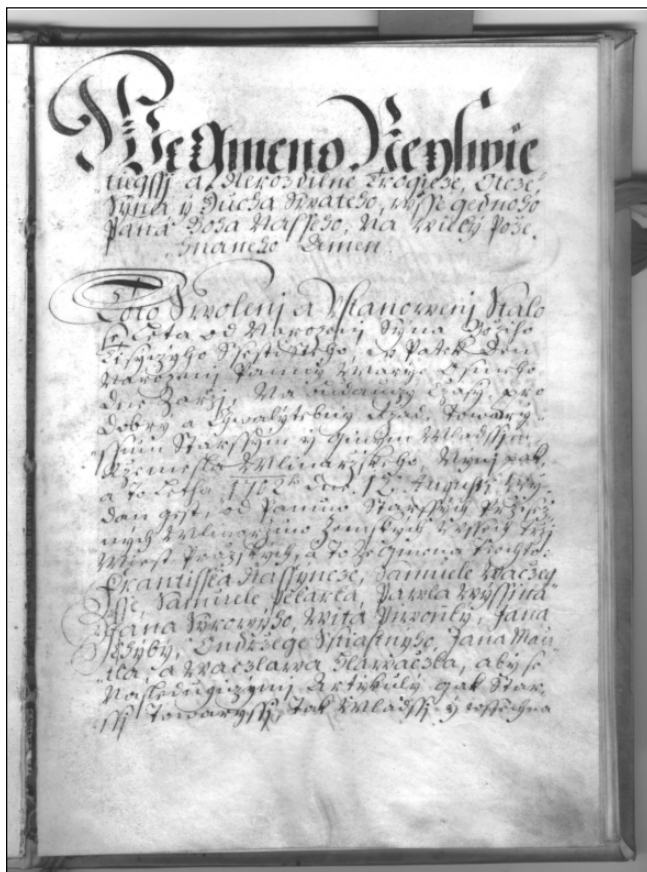 We Gmeno Neyswie
tiegssj a Nerozdilne Trogicze, Otcze,
Syna y Ducha Swateho, wsse gednoho
Pana Boha Nasseho, Na wieky Pože,
hnaneho Amen.
Toto Swolenj a Ustanowenj Stalo
se Leta od Narozenj Syna Božiho
Tisyczyho Ssestisteho, w Patek Den
Narozenj Panny Marye Osmeho
dne Zarzj, Na budauczy Czasy pro
dobry a Chwalytebny Rzad, Towary,
ssum Starssym y ginssym Mladssym
Rzemesla Mlinarzskeho Nynj pak,
a to Letha 1702 dne 12 Augusti wy
dan gest, od Panuw Starssych Przisež
nych Mlinarzuw Zemskych wssech trzj
Miest Prazskych, a to ze Gmena tiechto:
Frantisska Nassyncze, Samuele Waczey
sse, Samuele Pekarka, Pawla Wyssina
Jana Syroweho, Wita Piwoňky, Jana
Ondržege Sstiastnyho, Jana Mau
tla, a Waczlawa Hlawaczka, aby se
Nasledugiczymj Artykuly gak Star,
ssj Towaryssj, tak Mladssj y wssechna